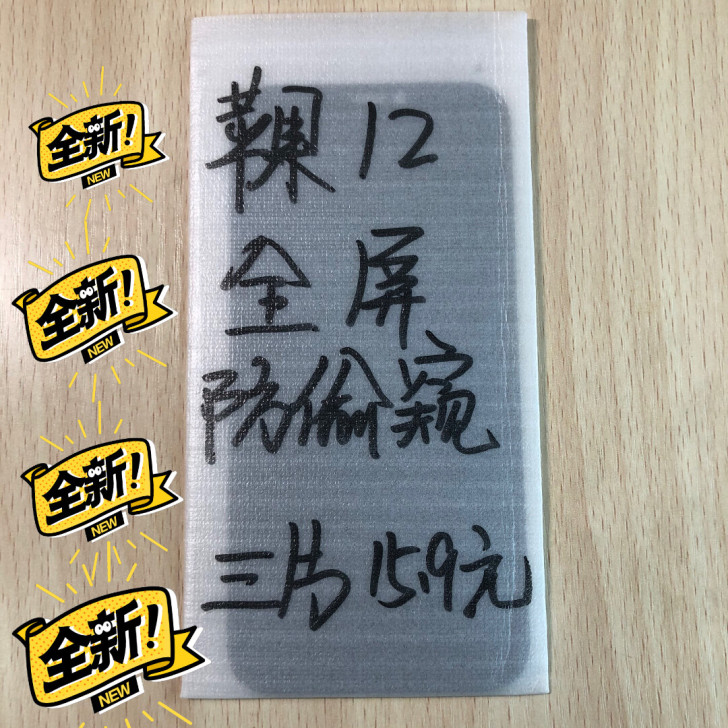 苹果 12
全屏
防偷窥
三片 15.9元
全新!
NEW
全新!
NEW
全新!
NEW
全新!
NEW